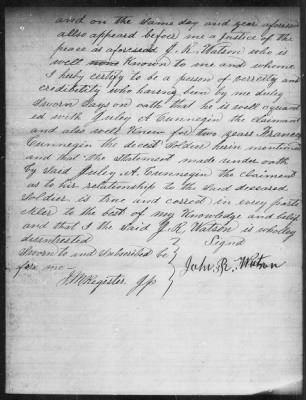 and on the same day and year aforesaid
also appeared before me a Justice of the
peace as aforesaid J. R. Watson who is
well Known to me and whome
I heby certify to be a person of vercity and
credibility who having been by me duly
sworn Says on oath that he is well aquant
ed with Juley A. Cunnegin the claimant
and also well knew for two years
Cunnegin the decest Soldier herin mentioned
and that the Statement made under oath
by Said Juley A. Cunnegin the Claiment
as to his relationship to the Said deseased
Soldier is true and corect in every parti
cular to the best of my Knowledge and belief
and that I the Said J. R. Watson is wholley
disentrested Signd
Sworn to and Subscribed be
fore me— John R. Watson
McRegister J.p.